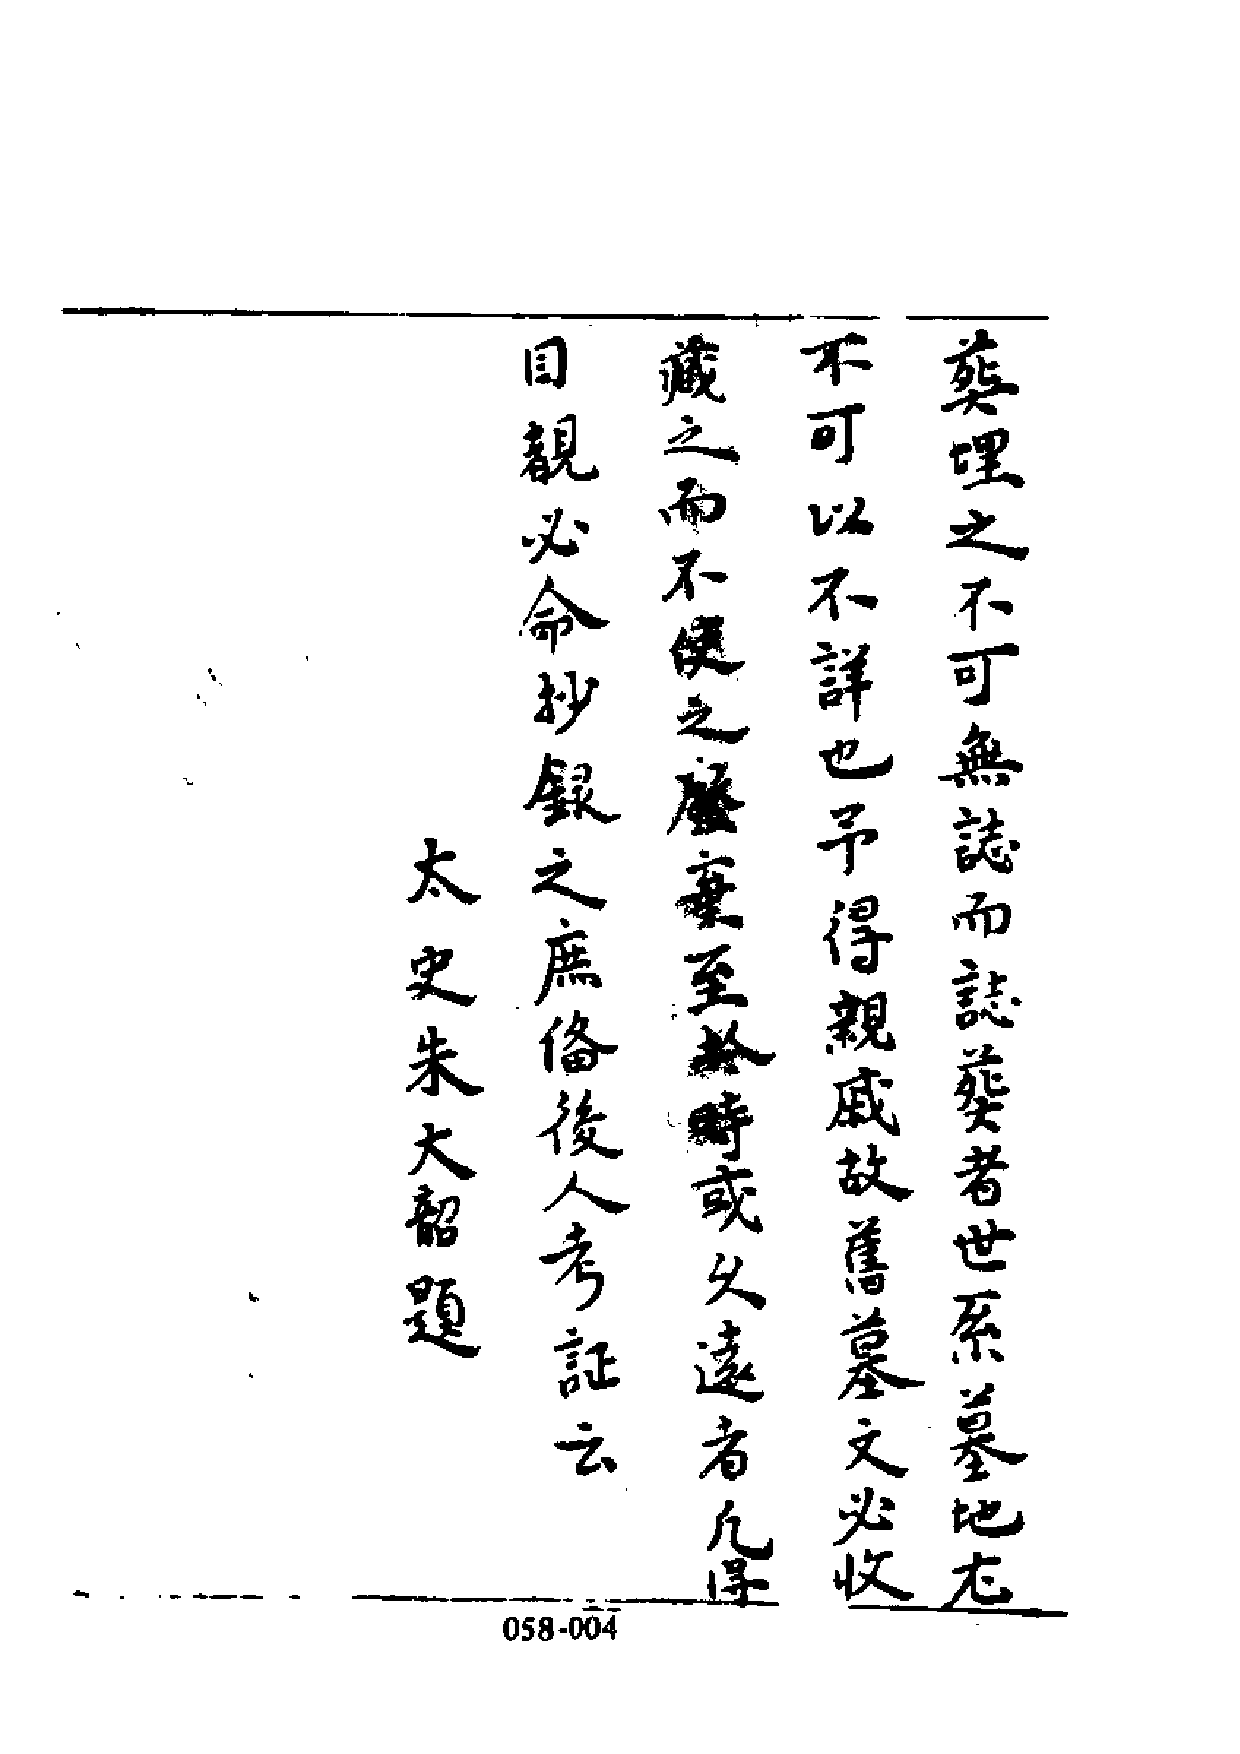 葬埋之不可無誌而誌葬者世系墓地尤
不可以不詳也予得親戚故舊墓文必收
藏之而不使之廢棄至於時或久遠者凡得
目覩必命抄録之庶俻後人考証云
太史朱大韶題
058-004